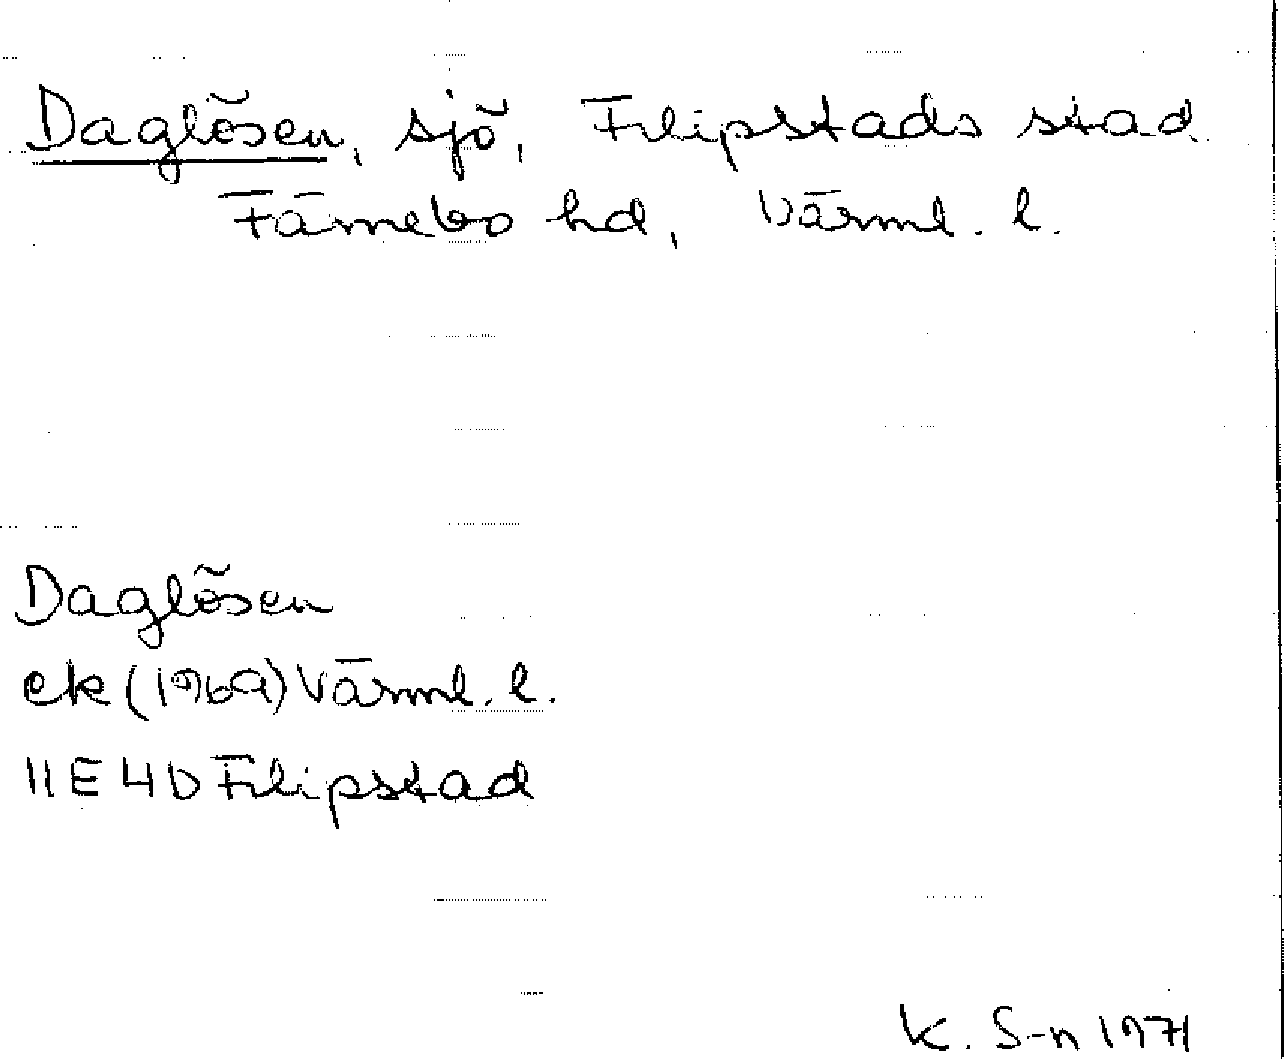 Daglösen, sjö, Filipstads stad
Färnebo hd, Värml. l.
Daglösen
ek (1969) Värml. l.
11E 4D Filipstad
K. S-n 1971